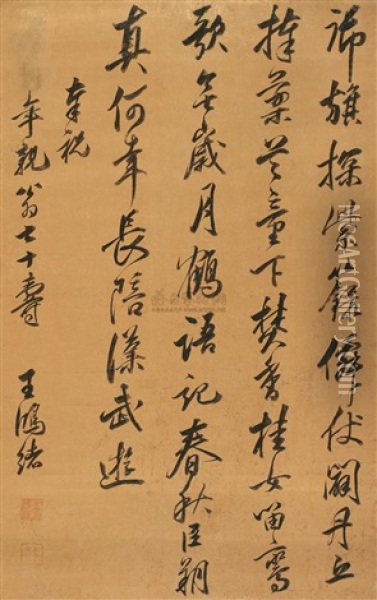 御旗探紫籙僊仗闢丹丘
捧藥芝童下焚香桂女留鸞
歌無歲月鶴語記春秋臣朔
真何幸長陪漢武遊
奉祝
年親翁七十壽
王鴻緒